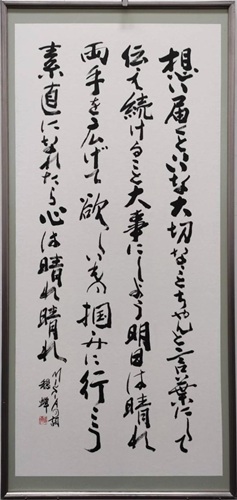 想い届くといいな大切なことちゃんと言葉にして
伝え続けること大事にしよう明日は晴れ
両手を広げて欲しいもの掴みに行こう
素直になれたら心は晴れ晴れ